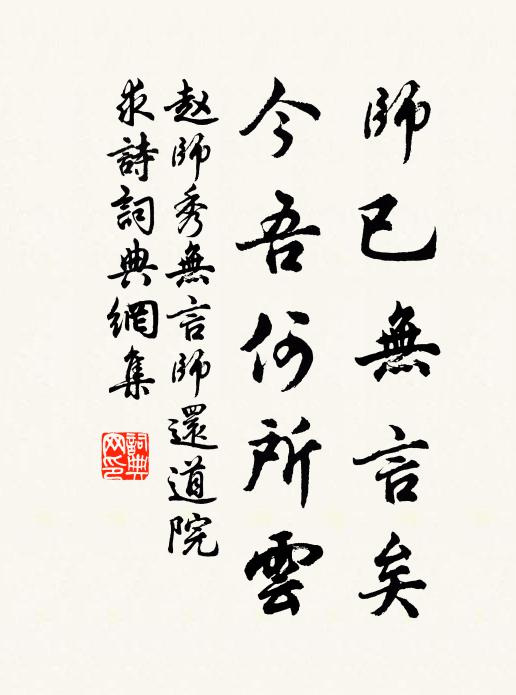 師已無言矣
今吾何所雲
趙師秀無言師還道院
求詩詞典網集
詞典
网印